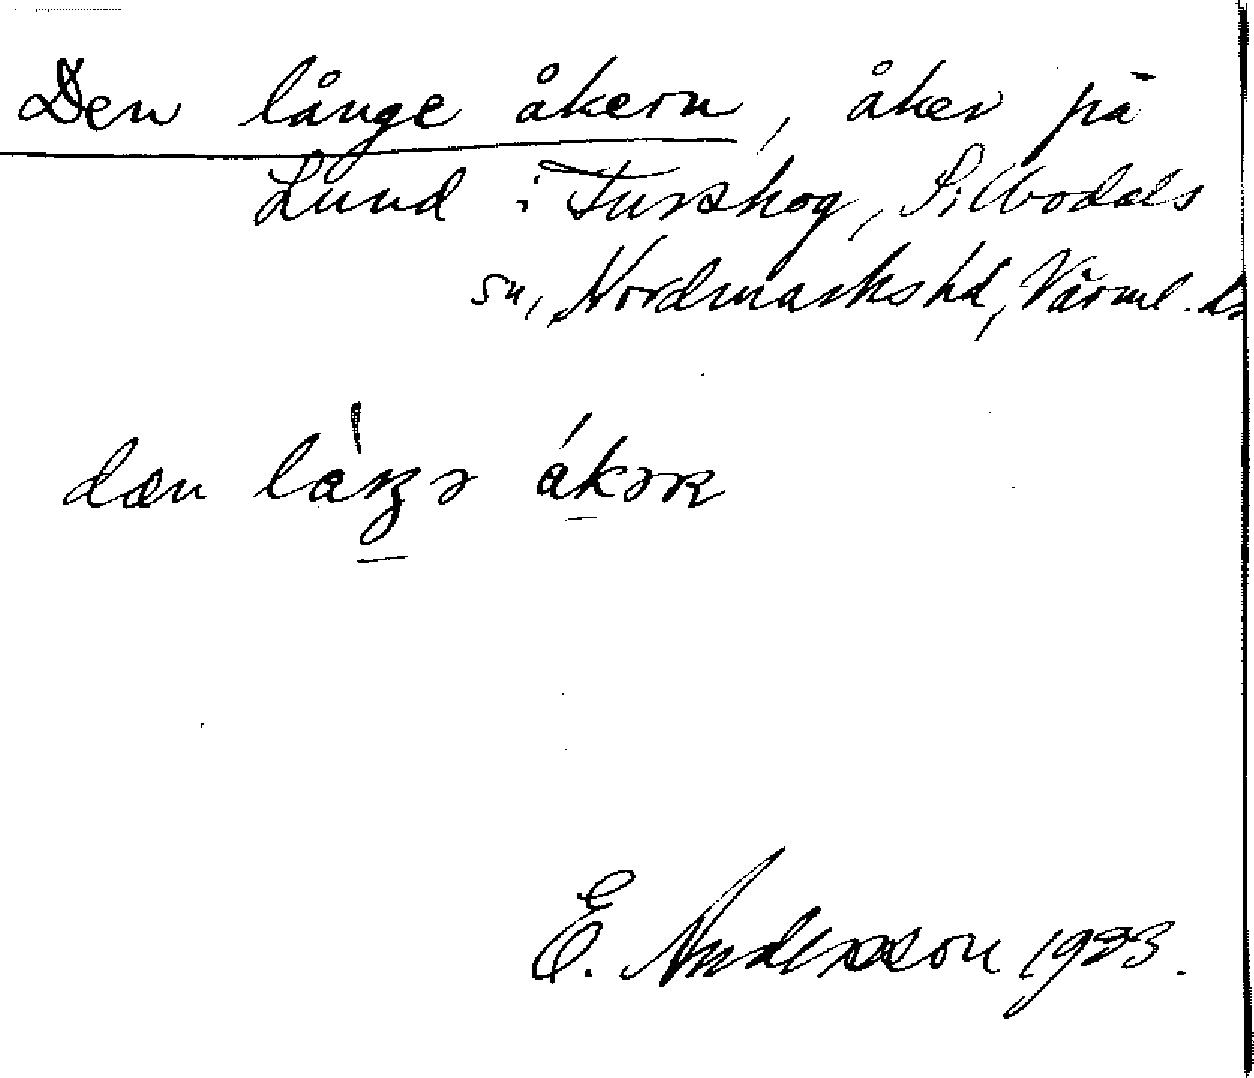 Den långe åkern, åker på
Lund i Turskog, Silbodals
sn, Nordmarks hd, Värml. l.
dæn låŋə åkər
E. Andersson 1923.